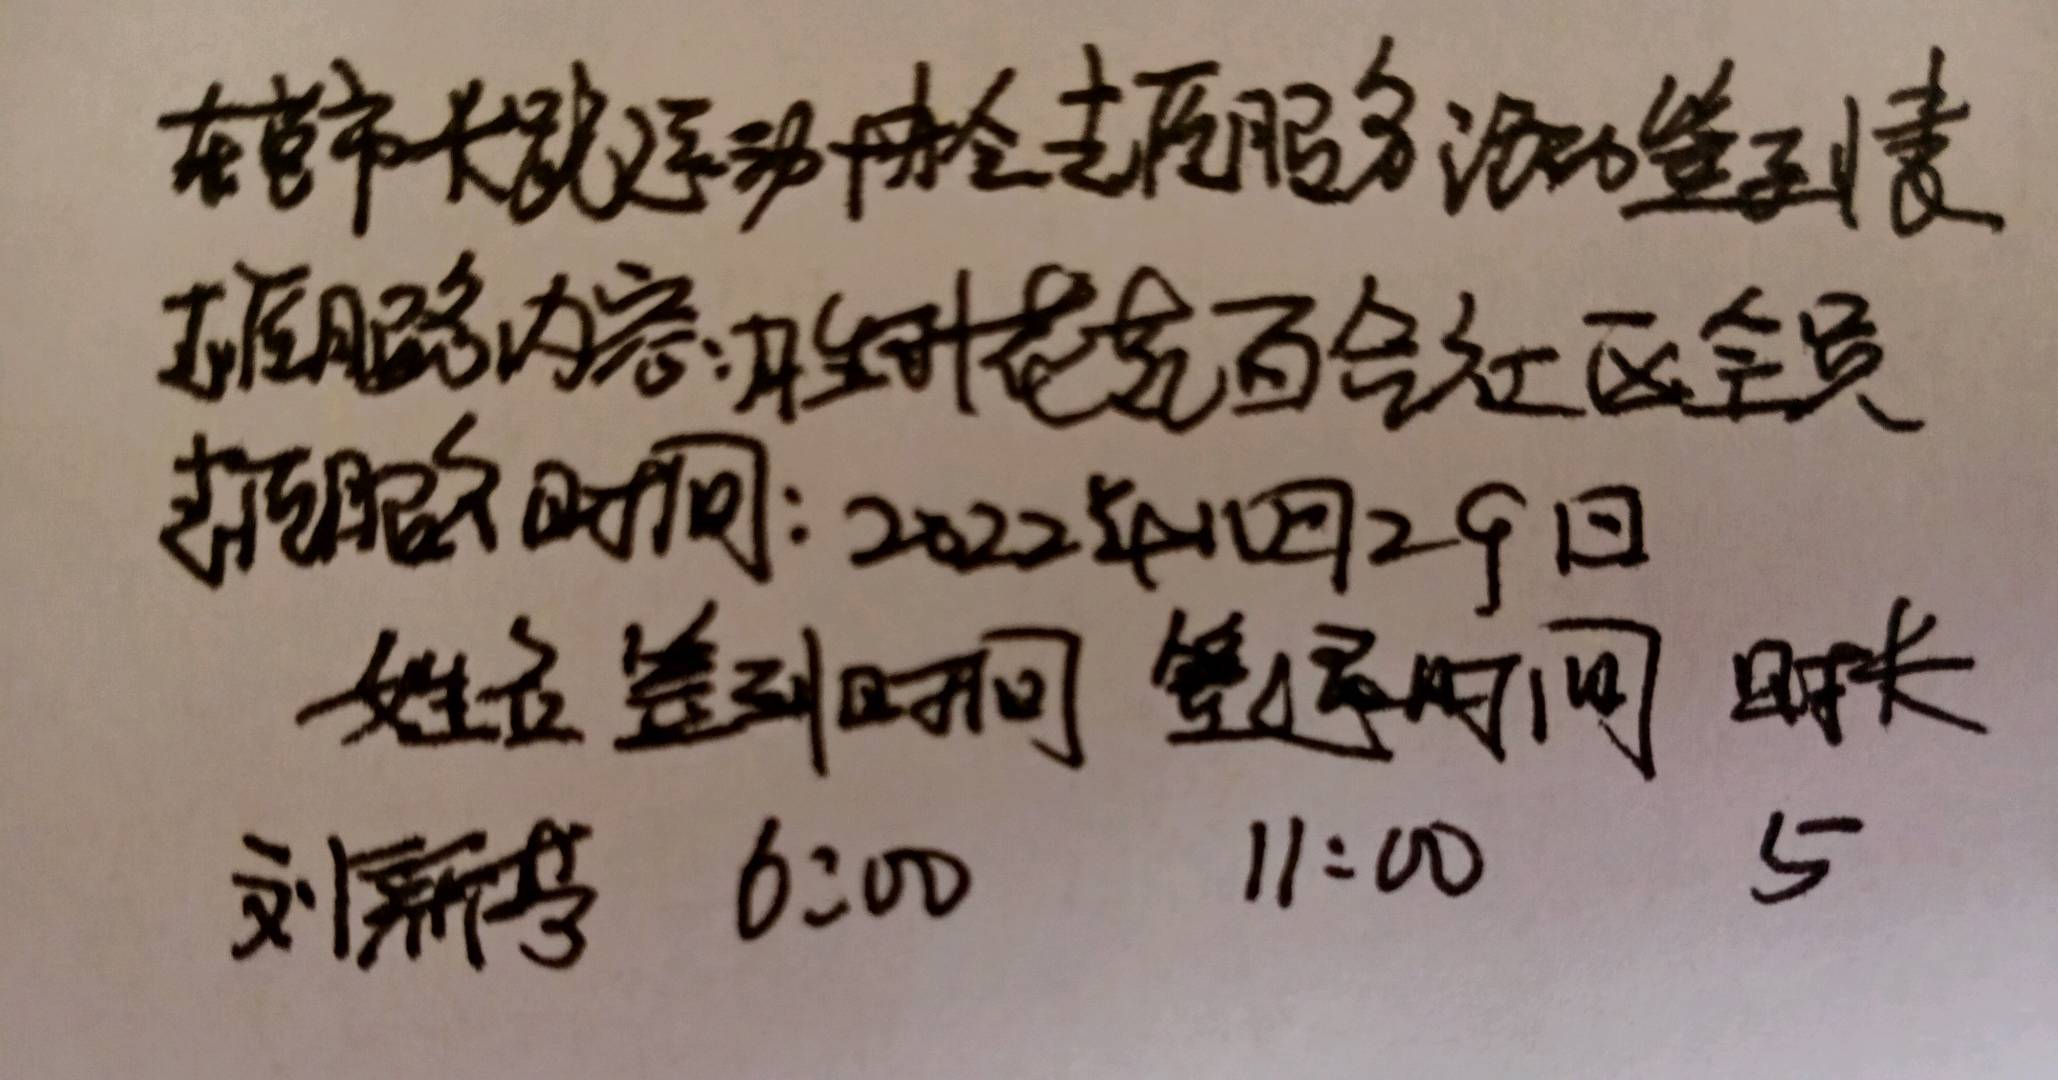 东营市长跑运动协会志愿服务活动签到表
志愿服务内容:胜叶花苑百合社区全员
志愿服务时间:2022年10月29日
姓名 签到时间 签退时间 时长
刘新芳 6:00 11:00 5